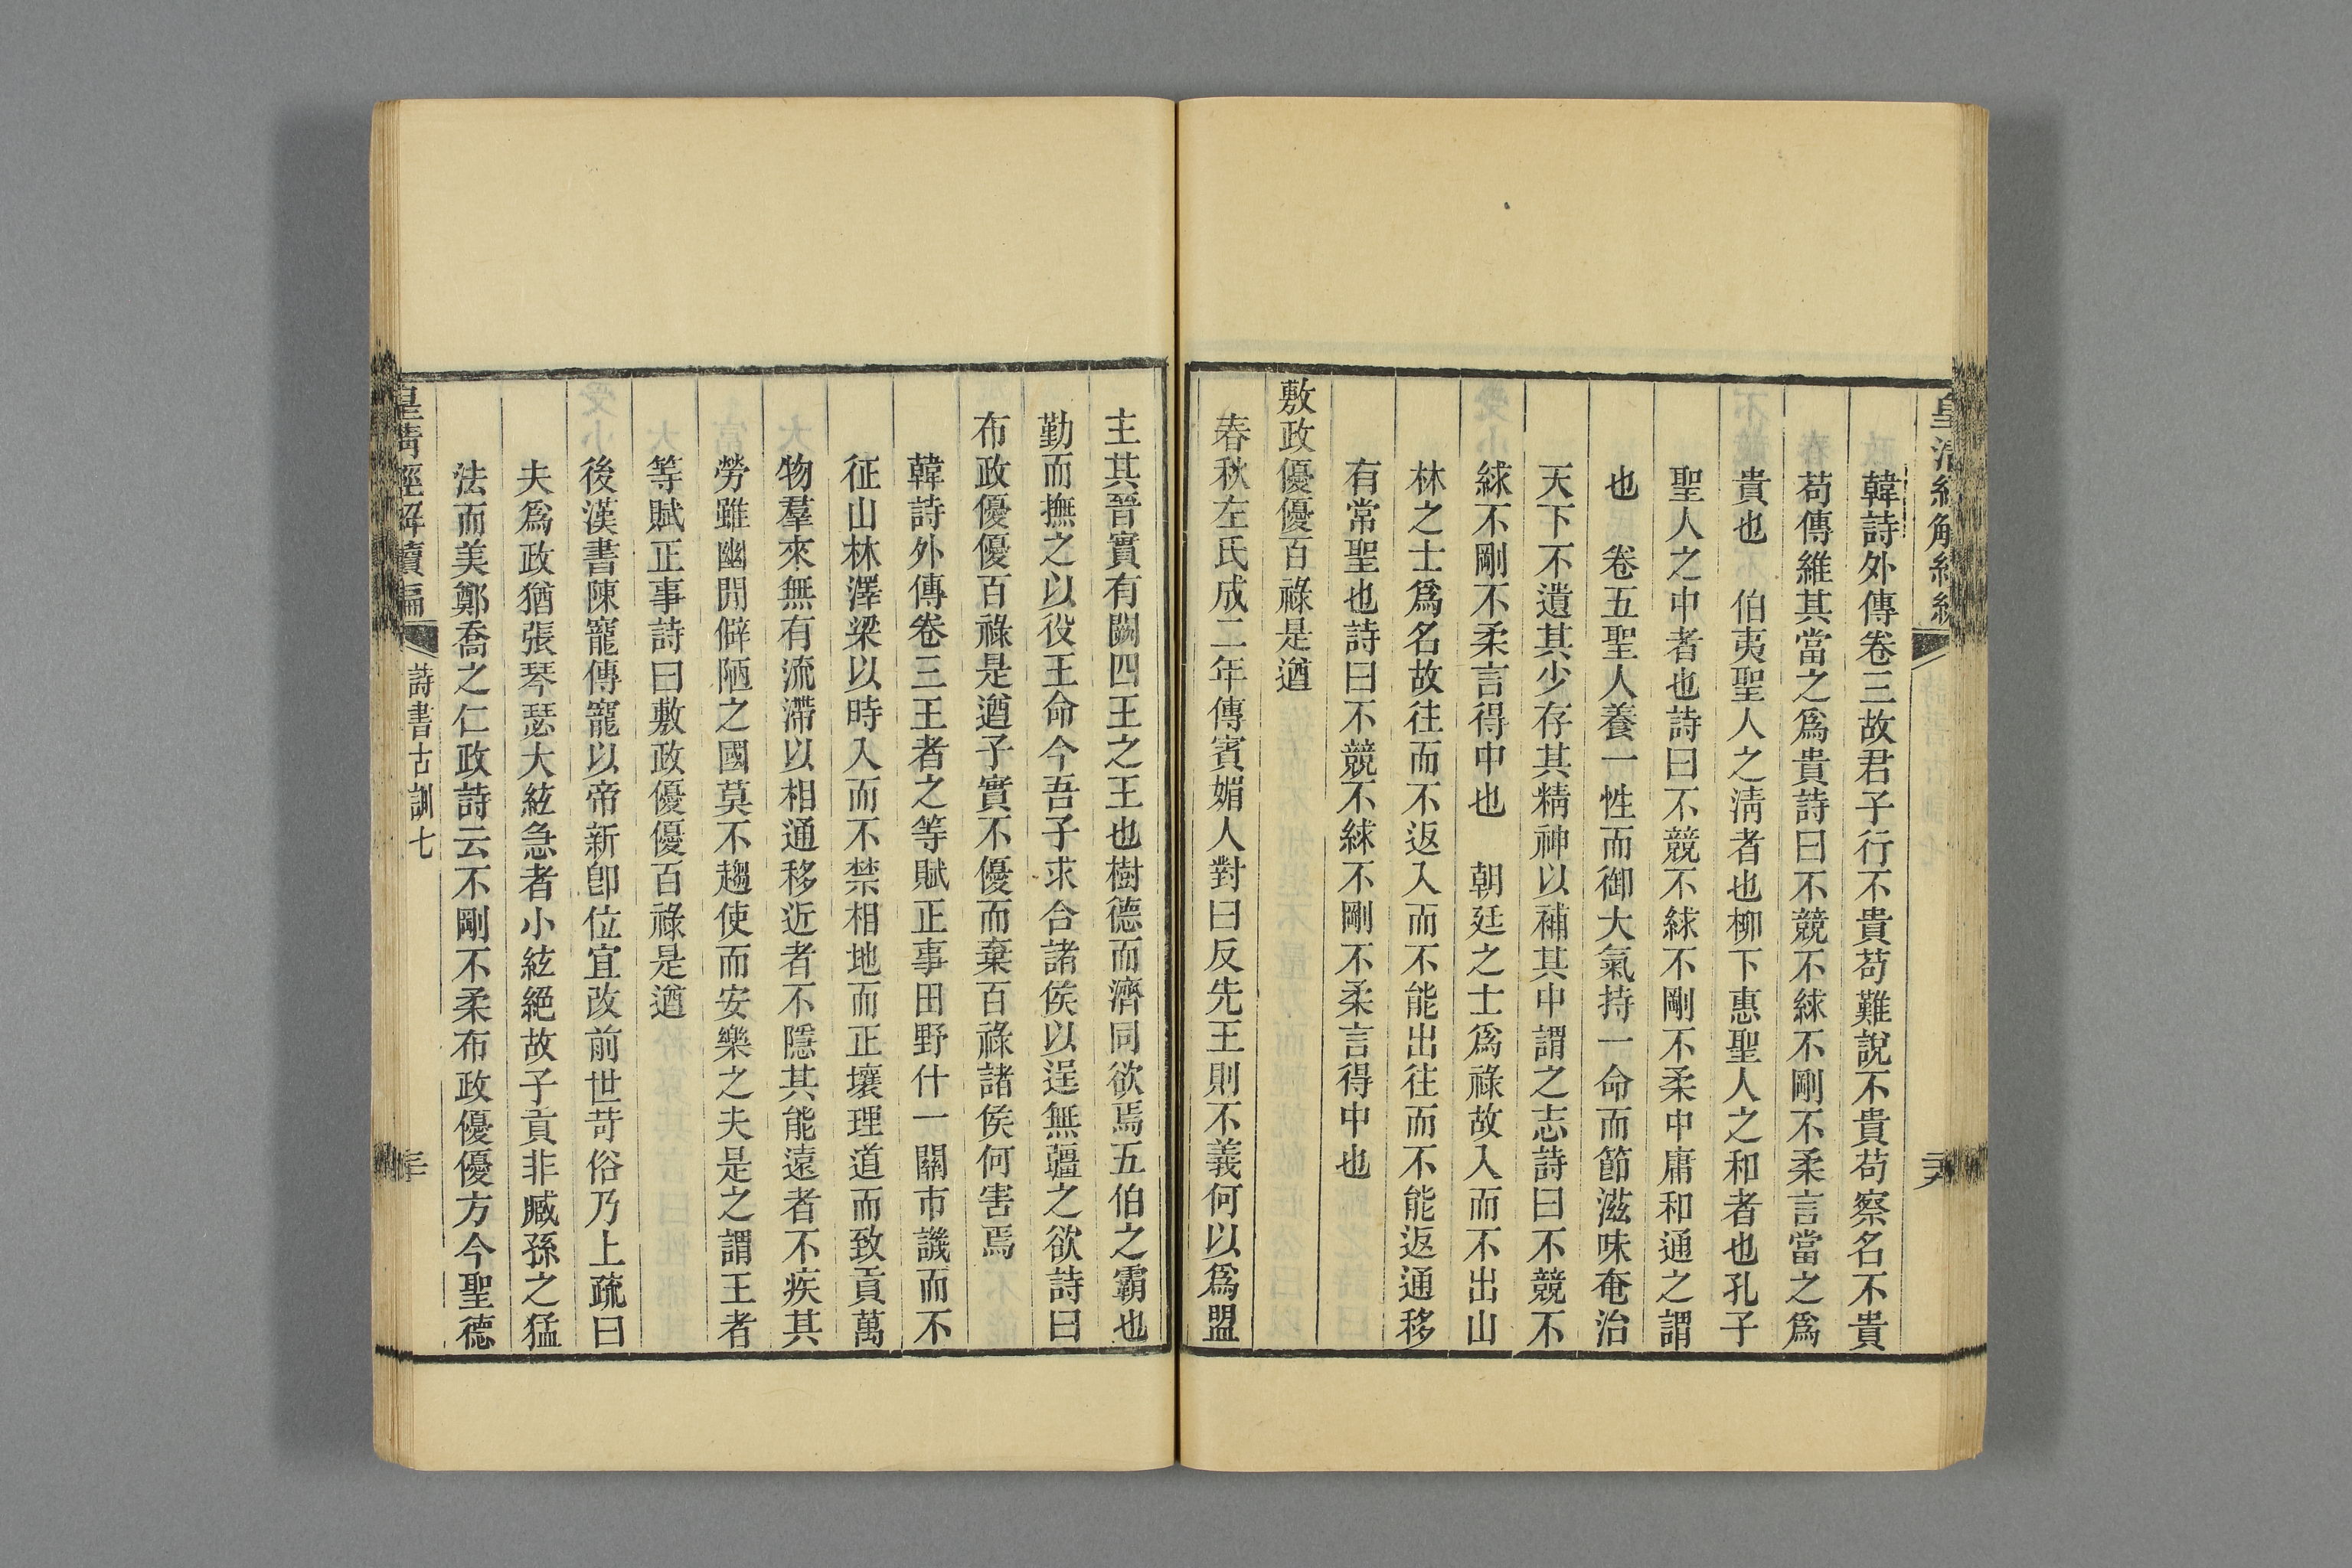 韓詩外傳卷三故君子行不貴苟難說不貴苟察名不貴
苟傳維其當之爲貴詩曰不競不絿不剛不柔言當之爲
貴也　伯夷聖人之淸者也柳下惠聖人之和者也孔子
聖人之中者也詩曰不競不絿不剛不柔中庸和通之謂
也　卷五聖人養一性而御大氣持一命而節滋味奄治
天下不遺其少存其精神以補其中謂之志詩曰不競不
絿不剛不柔言得中也　朝廷之士爲祿故入而不出山
林之士爲名故往而不返入而不能出往而不能返通移
有常聖也詩曰不競不絿不剛不柔言得中也
敷政優優百祿是遒
春秋左氏成二年傳賓媚人對曰反先王則不義何以爲盟
主其晉實有闕四王之王也樹德而濟同欲焉五伯之霸也
勤而撫之以役王命今吾子求合諸侯以逞無疆之欲詩曰
布政優優百祿是遒子實不優而棄百祿諸侯何害焉
韓詩外傳卷三王者之等賦正事田野什一關市譏而不
征山林澤梁以時入而不禁相地而正壤理道而致貢萬
物羣來無有流滯以相通移近者不隱其能遠者不疾其
勞雖幽閒僻陋之國莫不趨使而安樂之夫是之謂王者
等賦正事詩曰敷政優優百祿是遒
後漢書陳寵傳寵以帝新卽位宜改前世苛俗乃上疏曰
夫爲政猶張琴瑟大絃急者小絃絕故子貢非臧孫之猛
法而美鄭喬之仁政詩云不剛不柔布政優優方今聖德
皇淸經解續編
詩書古訓七